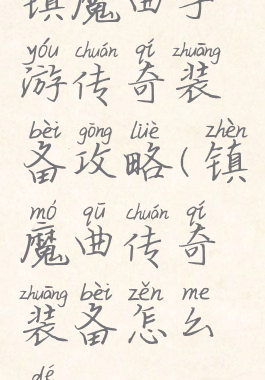 镇魔曲手
yóu chuán qí zhuāng
游传奇装
bèi gōng lüè zhèn
备攻略(镇
mó qū chuán qí
魔曲传奇
zhuāng bèi zěn me
装备怎么
dé